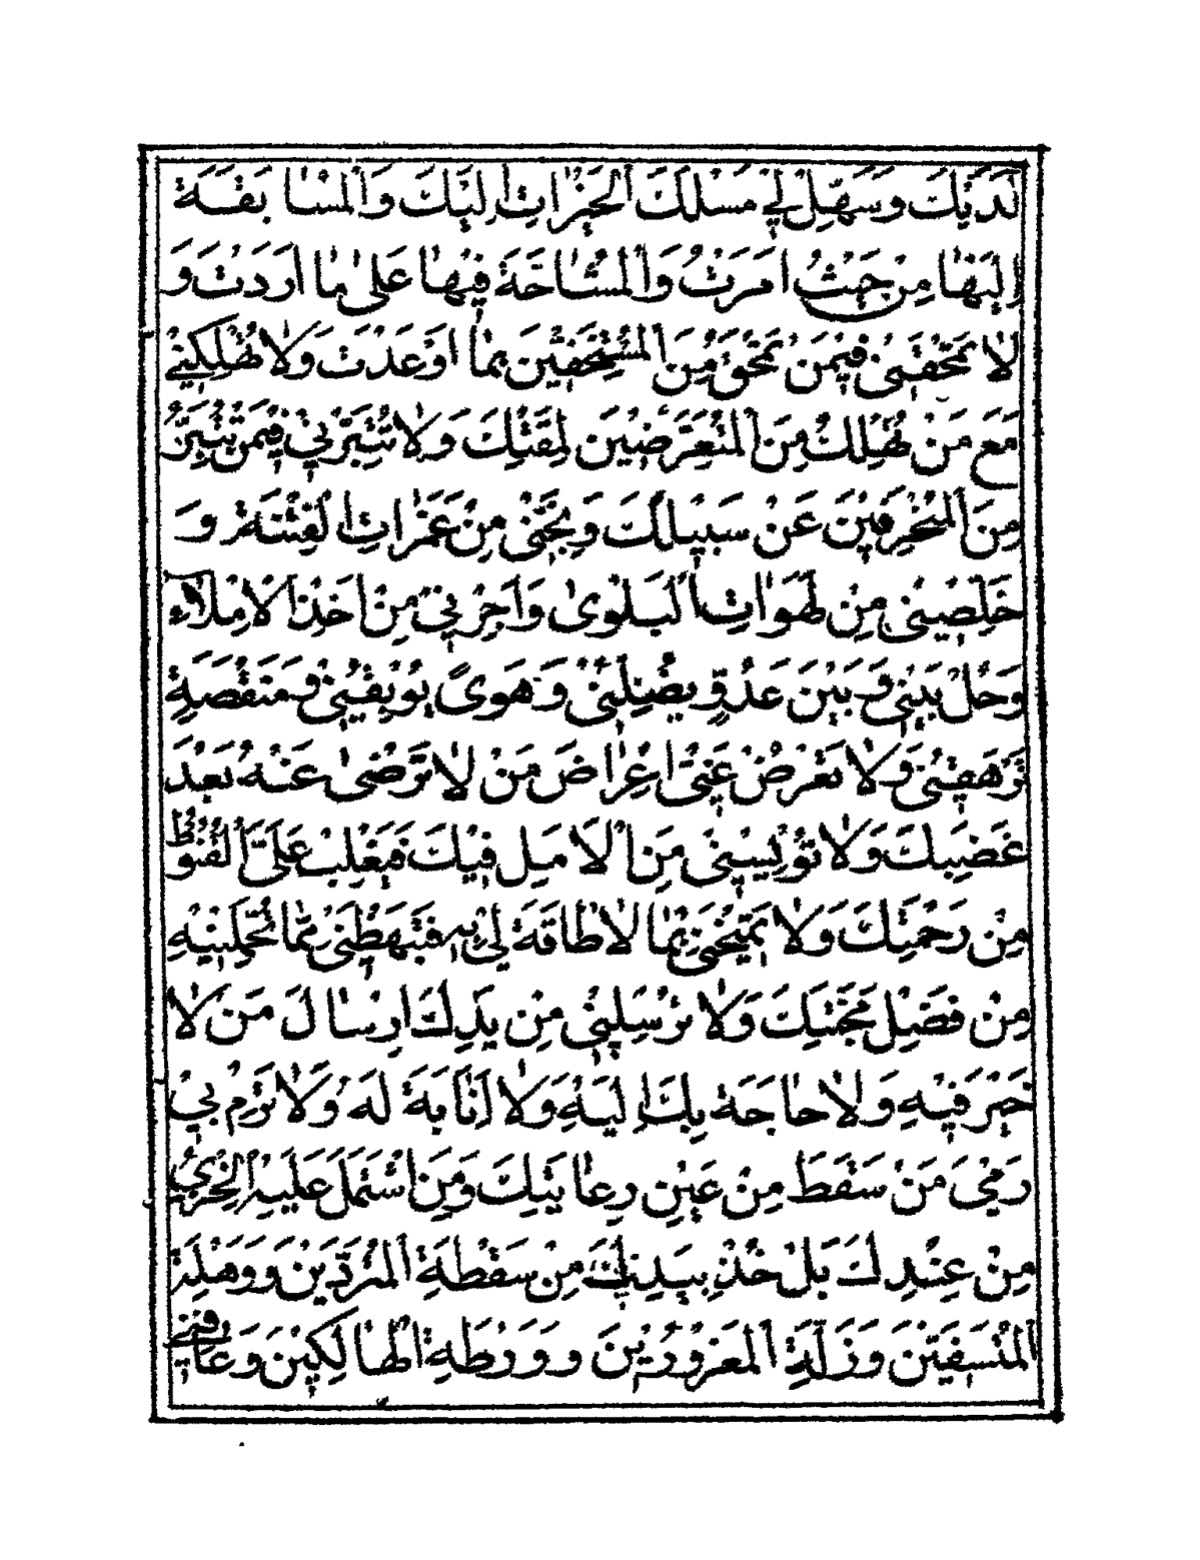 لَدَيْكَ وَسَهِّلْ لِي مَسْلَكَ الْخَيْرَاتِ إِلَيْكَ وَالْمُسَابَقَةَ
إِلَيْهَا مِنْ حَيْثُ أَمَرْتَ وَالْمُشَاحَّةَ فِيهَا عَلَى مَا أَرَدْتَ وَ
لَا تَمْحَقْنِي فِيمَنْ تَمْحَقُ مِنَ الْمُسْتَخِفِّينَ بِمَا أَوْعَدْتَ وَلَا تُهْلِكْنِي
مَعَ مَنْ تُهْلِكُ مِنَ الْمُتَعَرِّضِينَ لِمَقْتِكَ وَلَا تُتَبِّرْنِي فِيمَنْ تُتَبِّرُ
مِنَ الْمُنْحَرِفِينَ عَنْ سَبِيلِكَ وَنَجِّنِي مِنْ غَمَرَاتِ الْفِتْنَةِ وَ
خَلِّصْنِي مِنْ لَهَوَاتِ الْبَلْوَى وَأَجِرْنِي مِنْ أَخْذِ الْإِمْلَاءِ
وَحُلْ بَيْنِي وَبَيْنَ عَدُوٍّ يُضِلُّنِي وَهَوًى يُوبِقُنِي وَمَنْقَصَةٍ
تَرْهَقُنِي وَلَا تُعْرِضْ عَنِّي إِعْرَاضَ مَنْ لَا تَرْضَى عَنْهُ بَعْدَ
غَضَبِكَ وَلَا تُؤْيِسْنِي مِنَ الْأَمَلِ فِيكَ فَيَغْلِبَ عَلَيَّ الْقُنُوطُ
مِنْ رَحْمَتِكَ وَلَا تَمْتَحِنِّي بِمَا لَا طَاقَةَ لِي بِهِ فَتَبْهَظَنِي مِمَّا تُحَمِّلُنِيهِ
مِنْ فَضْلِ مَحَبَّتِكَ وَلَا تُرْسِلْنِي مِنْ يَدِكَ إِرْسَالَ مَنْ لَا
خَيْرَ فِيهِ وَلَا حَاجَةَ بِكَ إِلَيْهِ وَلَا إِنَابَةَ لَهُ وَلَا تَرْمِ بِي
رَمْيَ مَنْ سَقَطَ مِنْ عَيْنِ رِعَايَتِكَ وَمَنِ اشْتَمَلَ عَلَيْهِ الْخِزْيُ
مِنْ عِنْدِكَ بَلْ خُذْ بِيَدِي مِنْ سَقْطَةِ الْمُتَرَدِّينَ وَوَهْلَةِ
الْمُتَعَسِّفِينَ وَزَلَّةِ الْمَغْرُورِينَ وَوَرْطَةِ الْهَالِكِينَ وَعَافِنِي